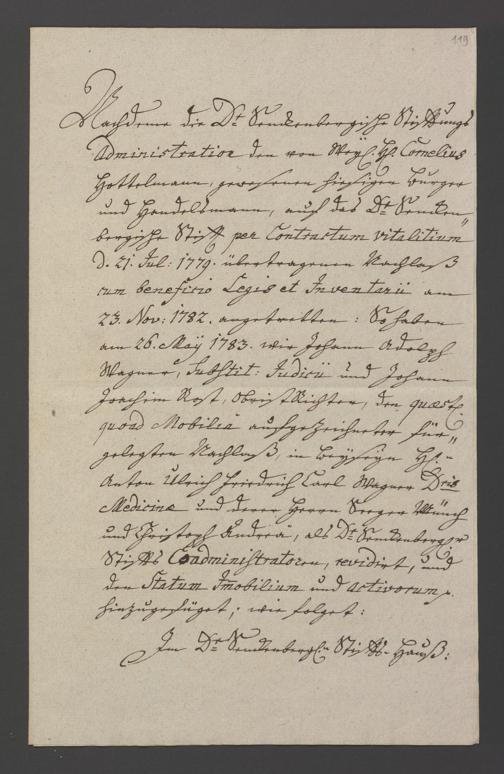 119
Nachdeme die Dr. Senckenbergische Stifftungs
Administration den von Weyl. H. Cornelius
Hottelmann, gewesenen hiesigen Burger
und Handelsmann, auf das Dr. Sencken„
bergische Stifft per Contractum vitalitium
d. 21. Jul: 1779. übertragenen Nachlaß
cum beneficio Legis et Inventarii am
23. Nov: 1782. angetretten: So haben
am 26. Maÿ 1783. wir Johann Adolph
Wagner, Substit: Judicii und Johann
Joachim Rost, Obrist Richter, den quæst:
quoad Mobilia aufgezeichneter für„
gelegten Nachlaß, in Beyseyn H.
Anton Ulrich Friedrich Carl Wagner Dris
Medicinæ und derer Herren Seeger Münch
und Christoph Andreä, als Dr. Senckenbergr
Stiffts Coadministratoren, revidirt, und
den Statum Immobilium und activorum
hinzugefüget, wie folget:
Im Dr. Senckenberg. Stiffts-Hauß: